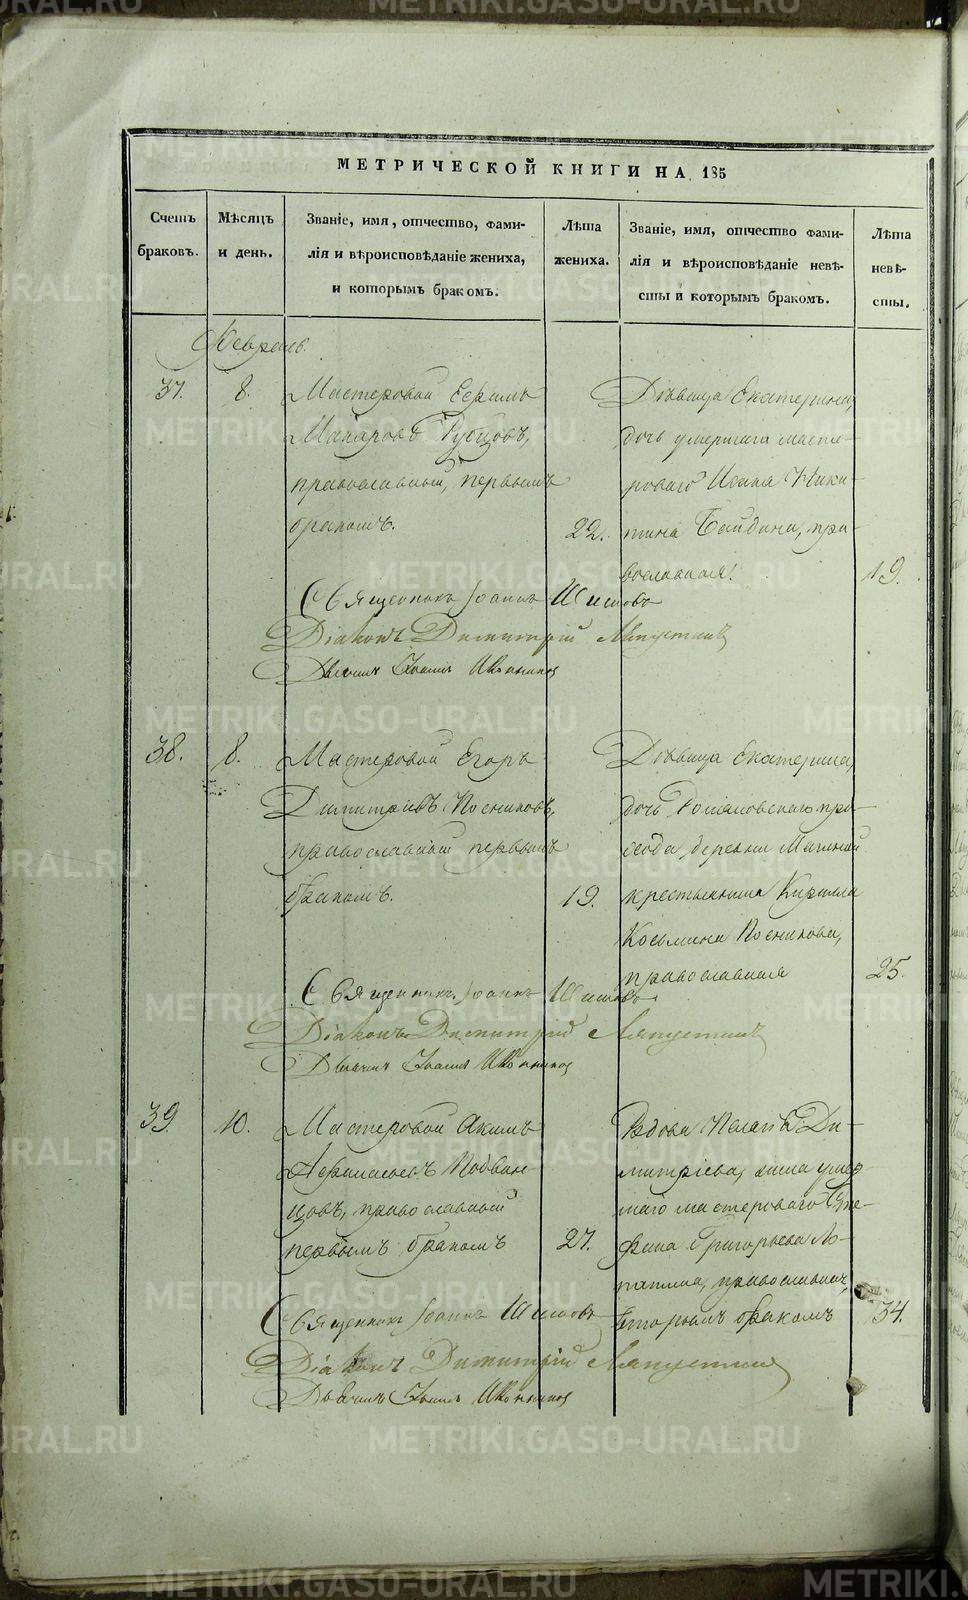 МЕТРИЧЕСКОЙ КНИГИ НА 185
Счетъ браковъ.
Мѣсяцъ и день.
Званіе, имя, отчество, фами-
лія и вѣроисповѣданіе жениха,
и которымъ бракомъ.
Лѣта жениха.
Званіе, имя, отчество фами-
лія и вѣроисповѣданіе невѣ-
сты и которымъ бракомъ.
Лѣта невѣ-
сты.
Февраль.
37.
8.
Мастеровой Ефимъ
Макаровъ Рубцовъ,
православный, первымъ
бракомъ.
22.
Дѣвица Екатерина,
дочь умершаго масте-
роваго Исака Ники-
тина Байдина, пра-
вославная.
19.
Священникъ Іоаннъ Шишовъ
Діаконъ Димитрій Ляпустинъ
Дьячикъ Іоаннъ Иконников
38.
8.
Мастеровой Егоръ
Димитріевъ Посниковъ,
православный первымъ
бракомъ.
19.
Дѣвица Екатерина,
дочь Романовскаго при-
хода, деревни
крестьянина Кирилла
Косьмина Посникова,
православная
25.
Священникъ Іоаннъ Шишовъ
Діаконъ Димитрій Ляпустинъ
Дьячикъ Іоаннъ Иконников
39.
10.
Мастеровой Акимъ
Афанасьевъ Подвин-
цовъ, православный
первымъ бракомъ
27.
Вдова Пелагѣя Ди-
митріева, жена умер-
шаго мастероваго Сте-
фана Григорьева Ло-
патина, православная,
вторымъ бракомъ
34.
Священникъ Іоаннъ Шишовъ
Діаконъ Димитрій Ляпустинъ
Дьячикъ Іоаннъ Иконников
METRIKI.GASO-URAL.RU